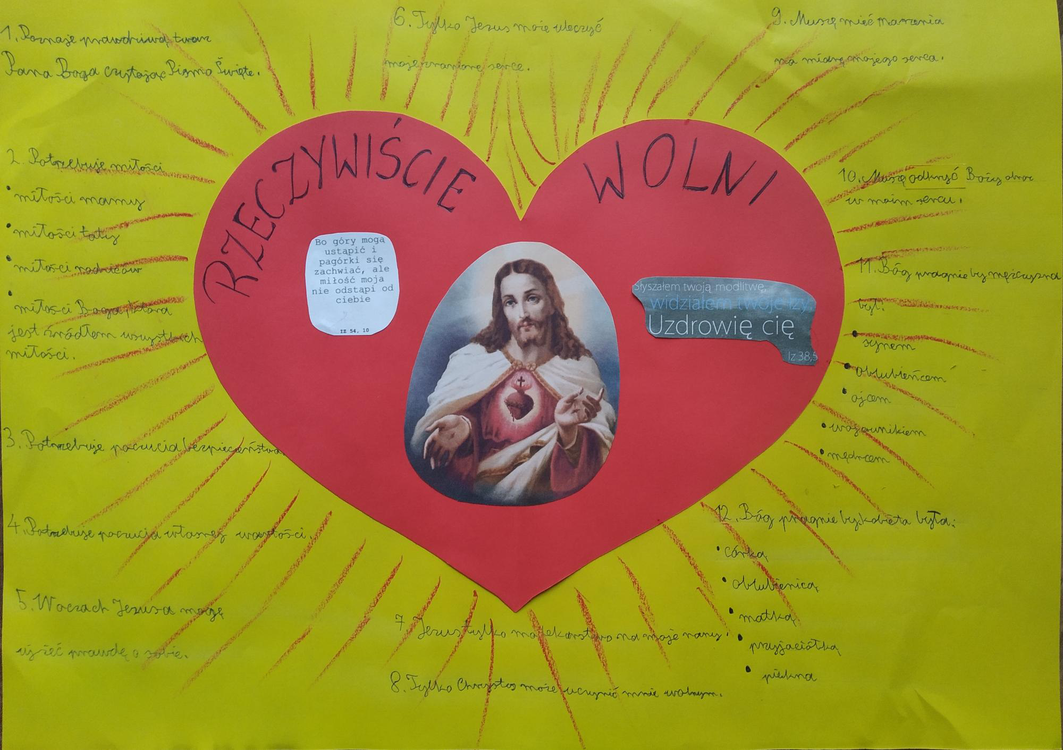 1. Poznaję prawdziwą twarz
Pana Boga czytając Pismo Święte.
2. Potrzebuję miłości
• miłości mamy
• miłości taty
• miłości rodziców
• miłości Boga, która
jest źródłem wszystkich
miłości.
3. Potrzebuję poczucia bezpieczeństwa
4. Potrzebuję poczucia własnej wartości.
5. W oczach Jezusa mogę
ujrzeć prawdę o sobie.
6. Tylko Jezus może uleczyć
moje zranione serce.
RZECZYWIŚCIE WOLNI
Bo góry mogą
ustąpić i
pagórki się
zachwiać, ale
miłość moja
nie odstąpi od
ciebie
IZ 54, 10
słyszałem twoją modlitwę,
widziałem twoje łzy
Uzdrowię cię
Iz 38,5
7. Jezus tylko ma lekarstwo na moje rany.
8. Tylko Chrystus może uczynić mnie wolnym.
9. Muszę mieć marzenia
na miarę mojego serca.
10. Muszę odkryć Boży obraz
w moim sercu.
11. Bóg pragnie by mężczyzna
był:
• synem
• oblubieńcem
• ojcem
• wojownikiem
• mędrcem
12. Bóg pragnie by kobieta była:
• córką
• oblubienicą
• matką
• przyjaciółką
• piękna